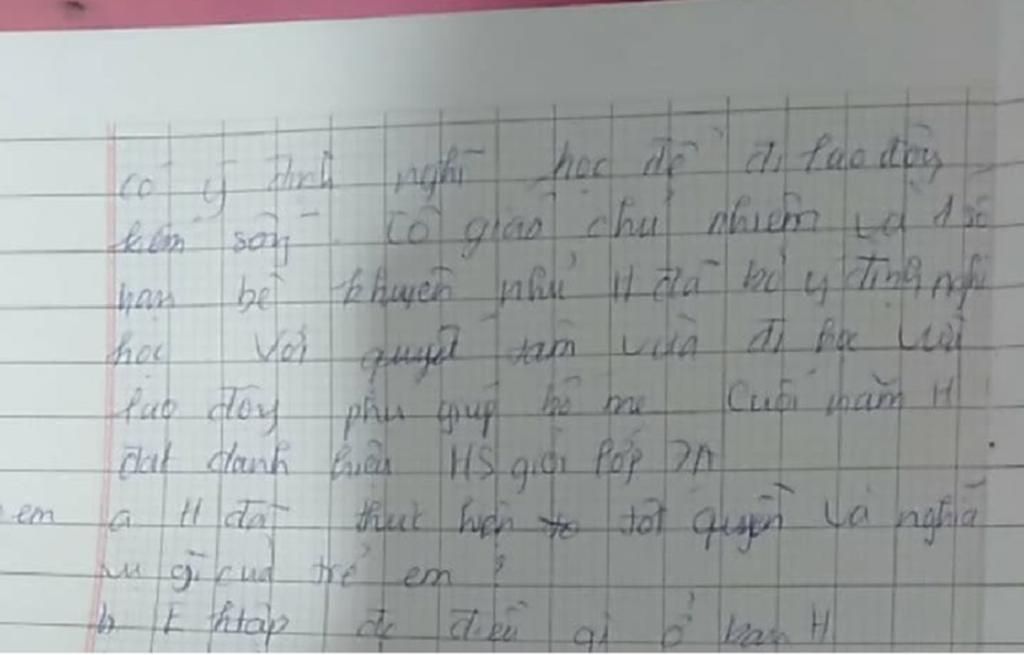 có ý định nghĩ học để đi lao động
kiếm sống. Cô giáo chủ nhiệm và 1 số
bạn bè khuyên nhủ H đã bỏ ý định nghỉ
học Với quyết tâm vừa đi học vừa
lao động phụ giúp bố mẹ Cuối năm H
đạt danh hiệu HS giỏi lớp 7A
em a H đã thực hiện tốt quyền và nghĩa
vụ gì của trẻ em ?
b E htập đc điều gì ở bạn H